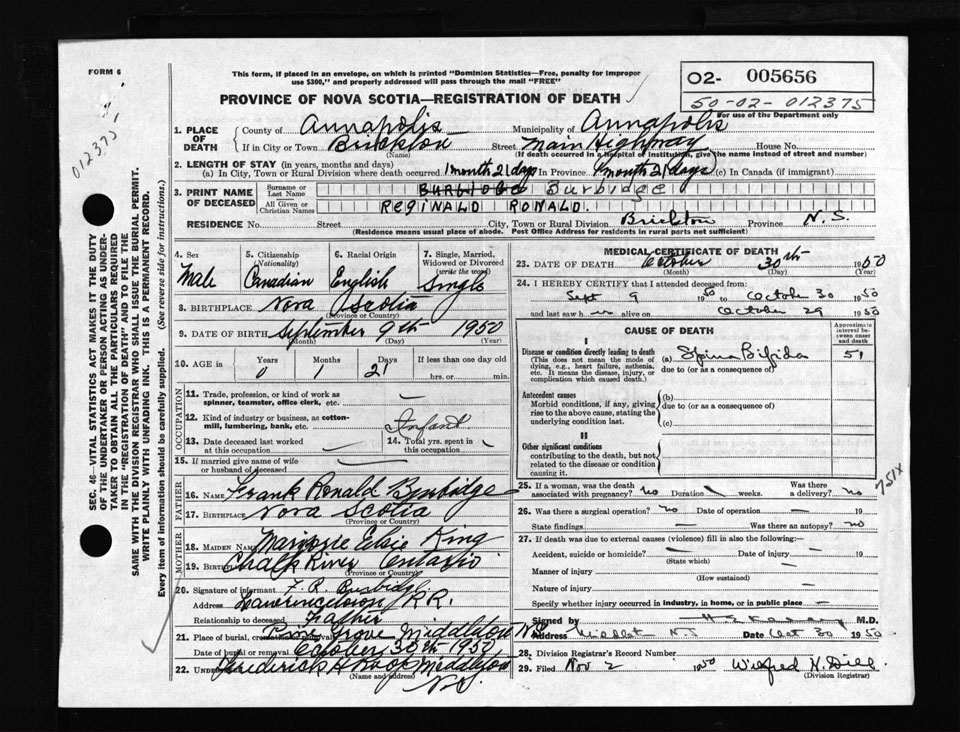 FORM 6
This form, if placed in an envelope, on which is printed "Dominion Statistics—Free, penalty for improper
use $300," and properly addressed will pass through the mail "FREE"
PROVINCE OF NOVA SCOTIA—REGISTRATION OF DEATH
O2- 005656
50-02-012375
For use of the Department only
012375
1. PLACE OF DEATH
County of Annapolis Municipality of Annapolis
If in City or Town Brickton Street Main Highway House No.
(Name) (If death occurred in a hospital or institution, give the name instead of street and number)
2. LENGTH OF STAY (in years, months and days)
(a) In City, Town or Rural Division where death occurred 1 month 21 days In Province 1 month 21 days (c) In Canada (if immigrant)
3. PRINT NAME OF DECEASED
Surname or Last Name Burbidge
All Given or Christian Names REGINALD RONALD.
RESIDENCE No. Street City, Town or Rural Division Brickton Province N.S.
(Residence means usual place of abode. Post Office Address for residents in rural parts not sufficient)
4. Sex 5. Citizenship (Nationality) 6. Racial Origin 7. Single, Married, Widowed or Divorced (write the word)
Male Canadian English Single
8. BIRTHPLACE Nova Scotia
(Province or Country)
9. DATE OF BIRTH September 9th 1950
(Month) (Day) (Year)
10. AGE in Years Months Days If less than one day old
0 1 21 hrs. or min.
OCCUPATION
11. Trade, profession, or kind of work as spinner, teamster, office clerk, etc. —
12. Kind of industry or business, as cotton-mill, lumbering, bank, etc. Infant
13. Date deceased last worked at this occupation
14. Total yrs. spent in this occupation
15. If married give name of wife or husband of deceased
FATHER
16. Name Frank Ronald Burbidge
17. Birthplace Nova Scotia
(Province or Country)
MOTHER
18. MAIDEN NAME Marjorie Elsie King
19. Birthplace Chalk River Ontario
(Province or Country)
20. Signature of informant F. R. Burbidge
Address Lawrencetown R.R.
Relationship to deceased Father
21. Place of burial, cremation or removal Pine Grove Middleton N.S.
Date of burial or removal October 30th 1950
22. UNDERTAKER Frederick Middleton
(Name and address) N.S.
MEDICAL CERTIFICATE OF DEATH
23. DATE OF DEATH October 30th 1950
(Month) (Day) (Year)
24. I HEREBY CERTIFY that I attended deceased from:
Sept 9 1950 to October 30 1950
and last saw him alive on October 29 1950
CAUSE OF DEATH
Approximate interval between onset and death
I
Disease or condition directly leading to death (a) Spina Bifida 51
(This does not mean the mode of dying, e.g., heart failure, asthenia, etc. It means the disease, injury, or complication which caused death.)
due to (or as a consequence of)
Antecedent causes (b)
Morbid conditions, if any, giving rise to the above cause, stating the underlying condition last.
due to (or as a consequence of)
(c)
II
Other significant conditions contributing to the death, but not related to the disease or condition causing it.
751X
25. If a woman, was the death associated with pregnancy? no Duration weeks. Was there a delivery? no
26. Was there a surgical operation? no Date of operation — 19
State findings — Was there an autopsy? no
27. If death was due to external causes (violence) fill in also the following:—
Accident, suicide or homicide? — Date of injury — 19
(State which)
Manner of injury
(How sustained)
Nature of injury —
Specify whether injury occurred in industry, in home, or in public place —
Signed M.D.
Address Middleton N.S. Date Oct 30 1950
28. Division Registrar's Record Number
29. Filed Nov 2 1950 Wilfred N. Dill
(Division Registrar)
SEC. 46—VITAL STATISTICS ACT MAKES IT THE DUTY
OF THE UNDERTAKER OR PERSON ACTING AS UNDER-
TAKER TO OBTAIN ALL THE PARTICULARS REQUIRED
IN THE "REGISTRATION OF DEATH" AND TO FILE THE
SAME WITH THE DIVISION REGISTRAR WHO SHALL ISSUE THE BURIAL PERMIT.
WRITE PLAINLY WITH UNFADING INK. THIS IS A PERMANENT RECORD.
Every item of information should be carefully supplied. (See reverse side for instructions.)